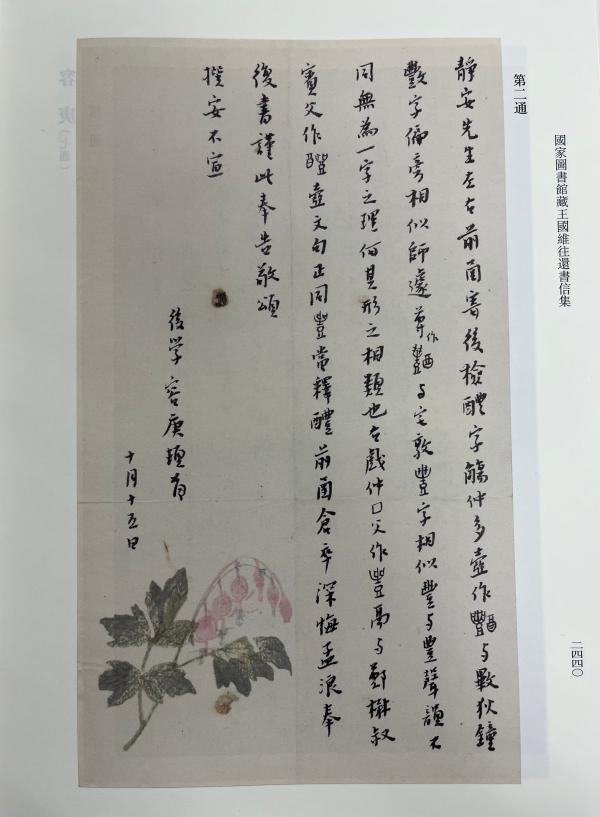 國家圖書館藏王國維往還書信集
二四四〇
第二通
靜安先生左右前函寄後檢醴字觴仲多壺作與𣪘狄鐘
數字偏旁相似師遽尊作與宅敦豐字相似豊与豐聲韻不
同無為一字之理何其形之相類也右戲仲口父作豊鬲与鄭楙叔
賓父作醴壺文句正同豊當釋醴前函倉卒深悔孟浪奉
復書謹此奉告敬頌
撰安不宣
後學容庚頓首
十月十五日
容庚（七通）